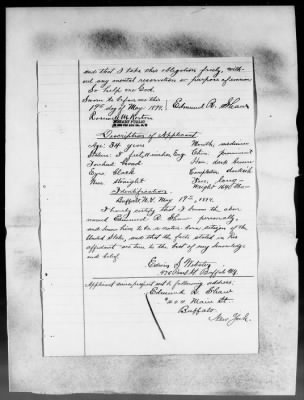 and that I take this obligation freely, with-
out any mental reservation or purpose of evasion
So help me God.
Sworn to before me this
19th day of May 1894. Edmund R. Shaw
NOTARY PUBLIC
Description of Applicant
Age: 34 years Mouth, medium
Stature: 5 feet, inches Eng. Chin, prominent
Forehead Good Hair dark brown
Eyes Black Complexion
Nose Straight Face, long
Identification
Buffalo, N.Y. May 19th, 1894.
I hereby certify that I know the above
named Edmund R. Shaw personally,
and know him to be a native born citizen of the
United States, and that the facts stated in his
affidavit are true to the best of my knowledge
and belief.
Edwin S.
Pearl St. Buffalo N.Y.
Applicant desires passport sent to following address.
Edmund R. Shaw
Main St.
Buffalo
New York.